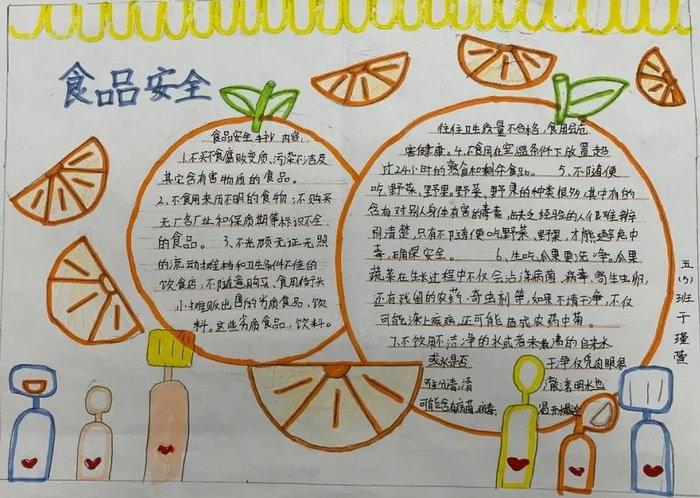 食品安全
食品安全手抄内容
1.不买不食腐败变质、污染不洁及
其它含有害物质的食品。
2.不食用来历不明的食物;不购买
无厂名厂址和保质期等标识不全
的食品。 3.不光顾无证无照
的流动摊档和卫生条件不佳的
饮食店;不随意购买、食用街头
小摊贩出售的劣质食品、饮
料。这些劣质食品、饮料。
往往卫生质量不合格,食用会危
害健康。4.不食用在室温条件下放置超
过24小时的熟食和剩余食品。 5.不随便
吃野菜、野果。野菜、野果的种类很多,其中有的
含有对人身体有害的毒素,缺乏经验的人很难辨
别清楚,只有不随便吃野菜、野果,才能避免中
毒,确保安全。 6.生吃瓜果要洗净。瓜果
蔬菜在生长过程中不仅会沾染病菌、病毒、寄生虫卵,
还有残留的农药、杀虫剂等,如果不清洗干净,不仅
可能染上疾病,还可能造成农药中毒。
7.不饮用不洁净的水或者未煮沸的自来水
或水是否 干净仅凭肉眼很
难分清,清 澈透明水也
可能含有病菌、病毒
五(5)班 于瑾萱